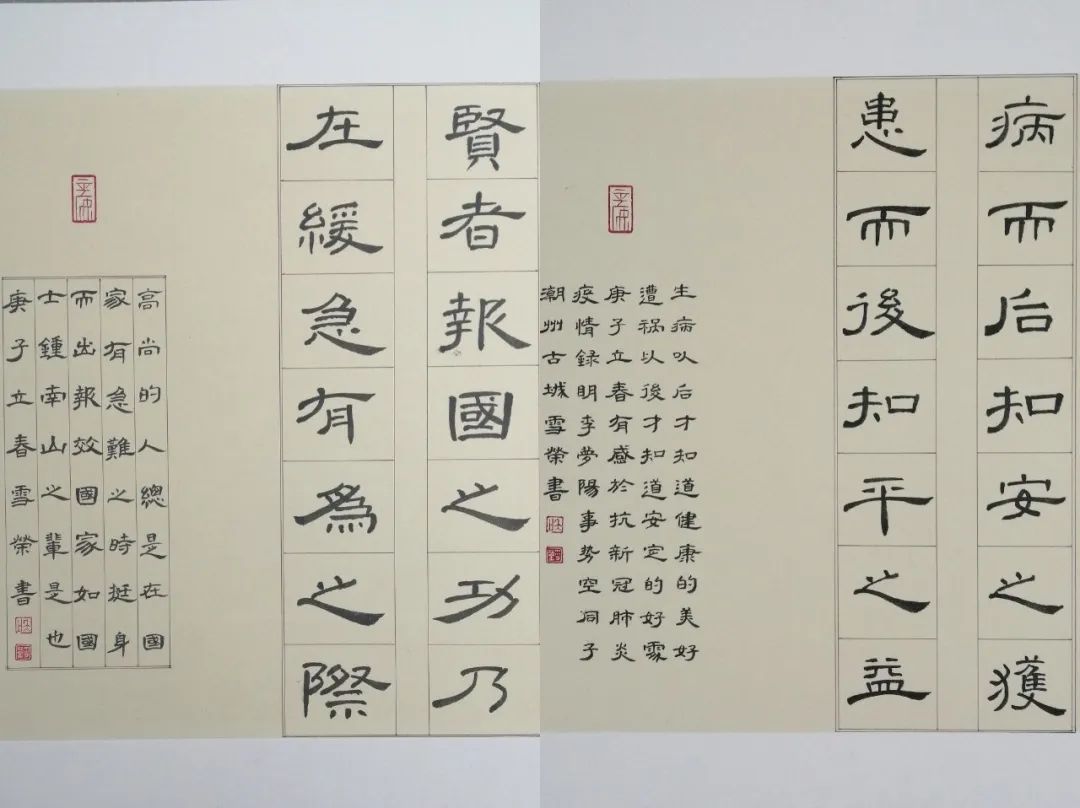 賢者報國之功乃
在緩急有為之際
高尚的人總是在國
家有急難之時挺身
而出報效國家如國
士鍾南山之輩是也
庚子立春雪榮書
病而后知安之獲
患而後知平之益
生病以后才知道健康的美好
遭祸以後才知道安定的好處
庚子立春有感於抗新冠肺炎
疫情録明李夢陽事势空同子
潮州古城雪榮書